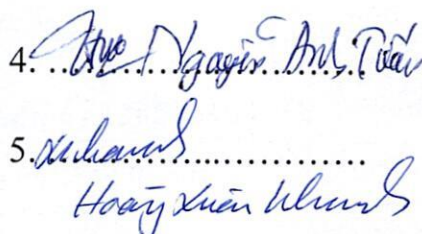 4. Nguyễn Anh Tuấn
5.
Hoàng Xuân Khanh